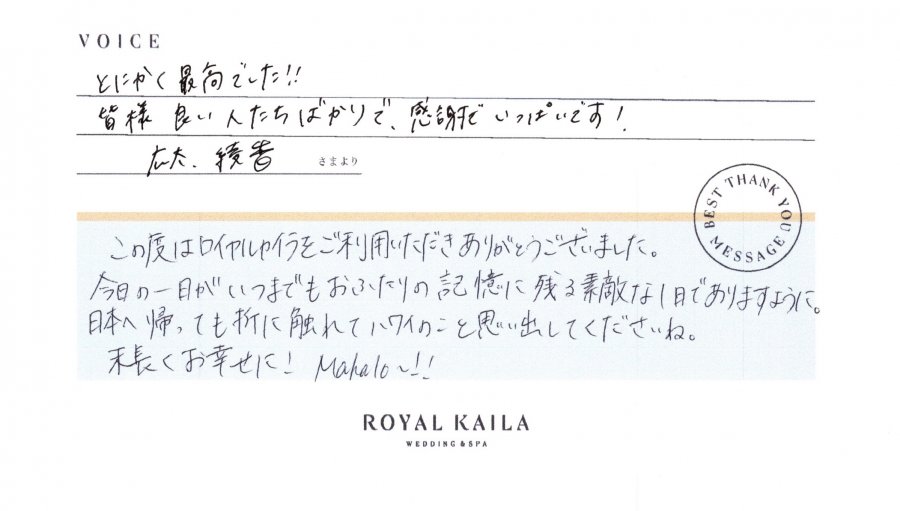 VOICE
とにかく最高でした!!
皆様 良い人たちばかりで、感謝でいっぱいです!
広大、綾香 さまより
BEST THANK YOU MESSAGE
この度はロイヤルカイラをご利用いただきありがとうございました。
今日の一日がいつまでもおふたりの記憶に残る素敵な1日でありますように。
日本へ帰っても折に触れてハワイのこと思い出してくださいね。
末長くお幸せに! Mahalo〜!!
ROYAL KAILA
WEDDING & SPA